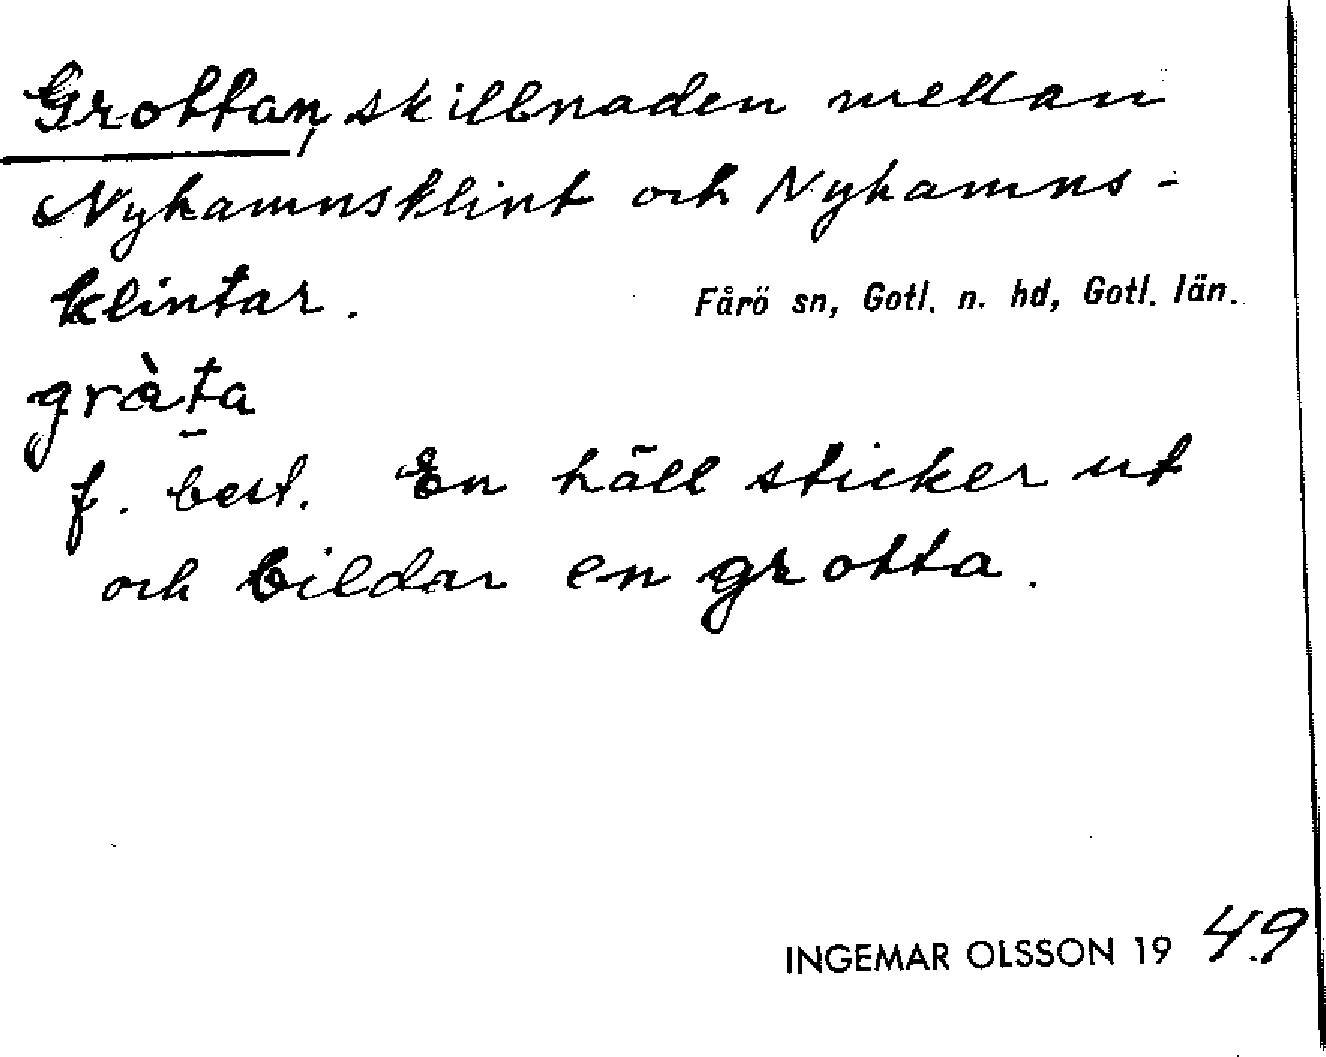 Grottan, skillnaden mellan
Nyhamnsklint och Nyhamns-
klintar. Fårö sn, Gotl. n. hd, Gotl. län.
gràta
f. best. En häll sticker ut
och bildar en grotta.
INGEMAR OLSSON 19 49